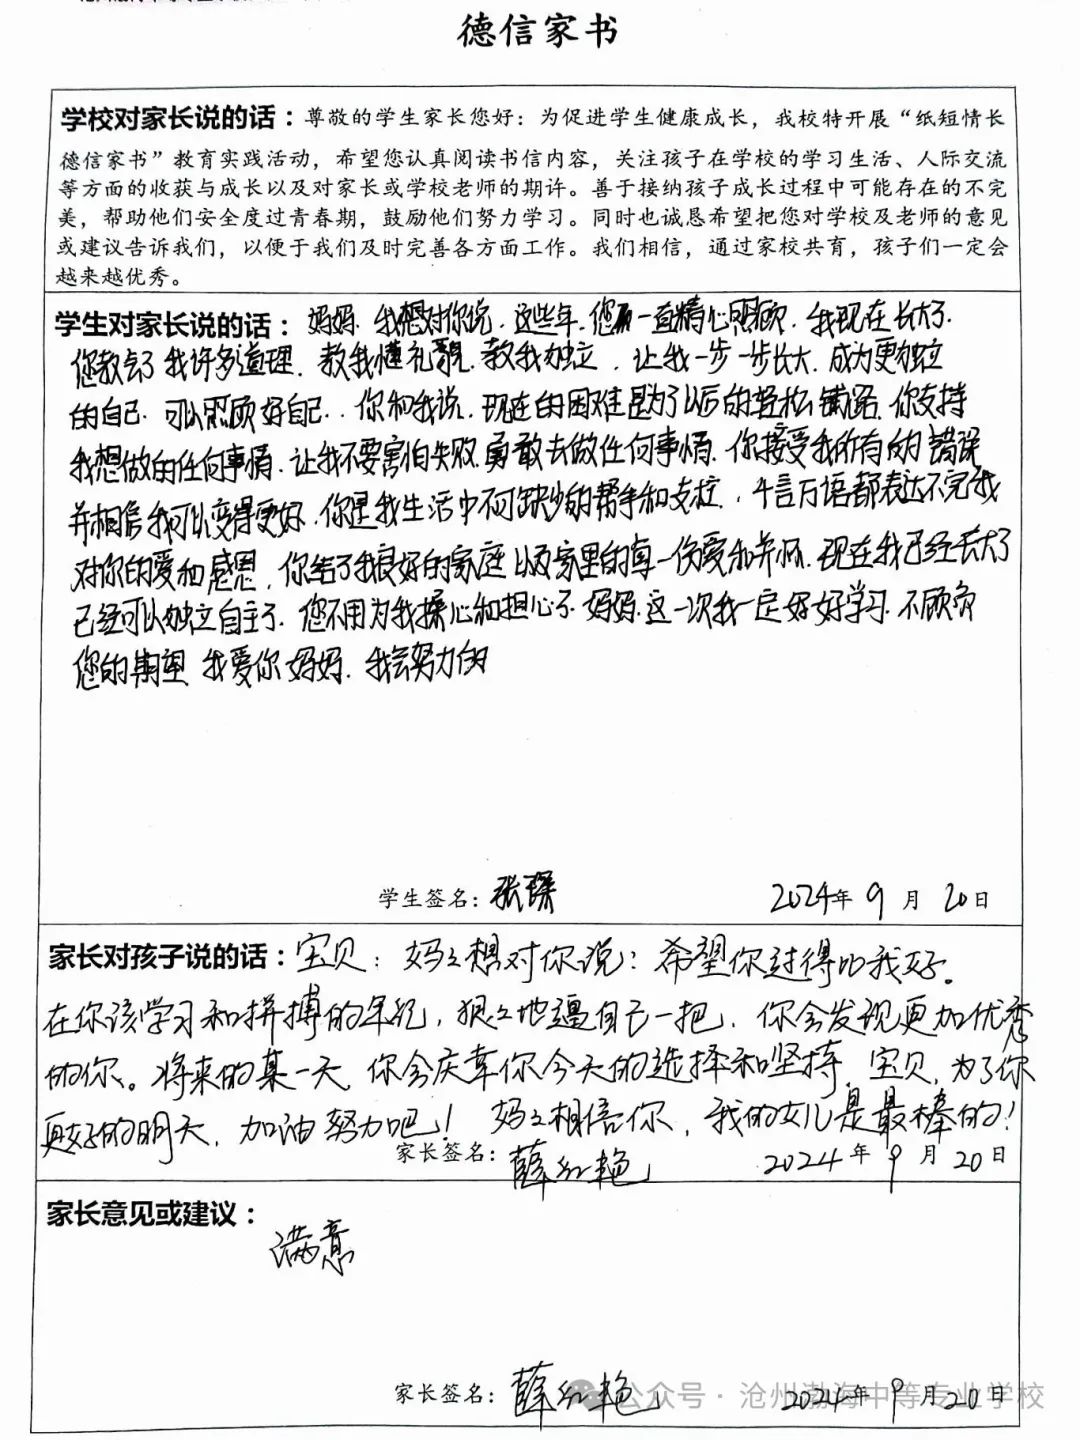 德信家书
学校对家长说的话：尊敬的学生家长您好：为促进学生健康成长，我校特开展“纸短情长
德信家书”教育实践活动，希望您认真阅读书信内容，关注孩子在学校的学习生活、人际交流
等方面的收获与成长以及对家长或学校老师的期许。善于接纳孩子成长过程中可能存在的不完
美，帮助他们安全度过青春期，鼓励他们努力学习。同时也诚恳希望把您对学校及老师的意见
或建议告诉我们，以便于我们及时完善各方面工作。我们相信，通过家校共育，孩子们一定会
越来越优秀。
学生对家长说的话：妈妈.我想对你说.这些年.您一直精心照顾.我现在长大了.
您教会了我许多道理.教我懂礼貌.教我独立.让我一步一步长大.成为更独立
的自己.可以照顾好自己..你和我说.现在的困难是为了以后的轻松铺路.你支持
我想做的任何事情.让我不要害怕失败.勇敢去做任何事情.你接受我所有的错误
并相信我可以变得更好.你是我生活中不可缺少的帮手和支柱.千言万语都表达不完我
对你的爱和感恩.你给了我良好的家庭以及家里的每一份爱和关怀.现在我已经长大了
已经可以独立自主了.您不用为我操心和担心了.妈妈.这一次我一定好好学习.不顾负
您的期望.我爱你妈妈.我会努力的
学生签名：张琛 2024年 9月 20日
家长对孩子说的话：宝贝：妈々想对你说：希望你过得比我好。
在你该学习和拼搏的年纪，狠々地逼自己一把，你会发现更加优秀
的你。将来的某一天，你会庆幸你今天的选择和坚持，宝贝，为了你
更好的明天，加油努力吧！妈々相信你，我的女儿是最棒的！
家长签名：薛红艳 2024年 9月 20日
家长意见或建议：
满意
家长签名：薛红艳 2024年 9月 20日
公众号·沧州渤海中等专业学校